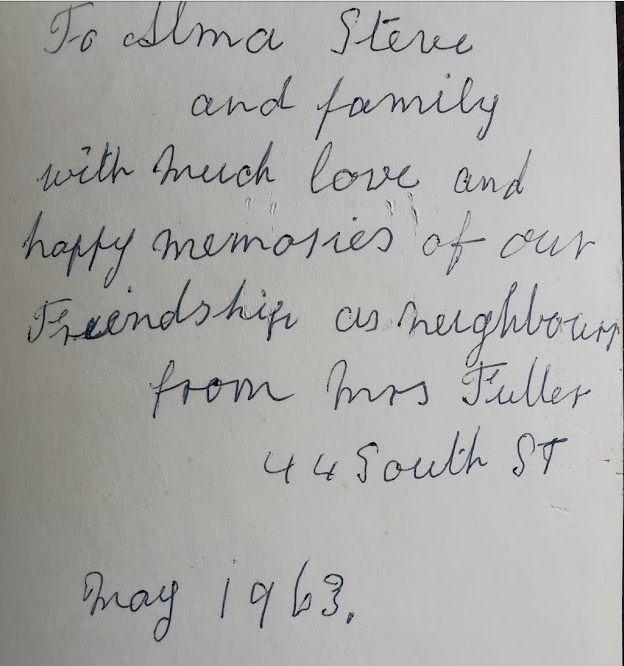 To Alma Steve
and family
with much love and
happy memories of our
Friendship as neighbours
from Mrs Fuller
44 South ST
May 1963.